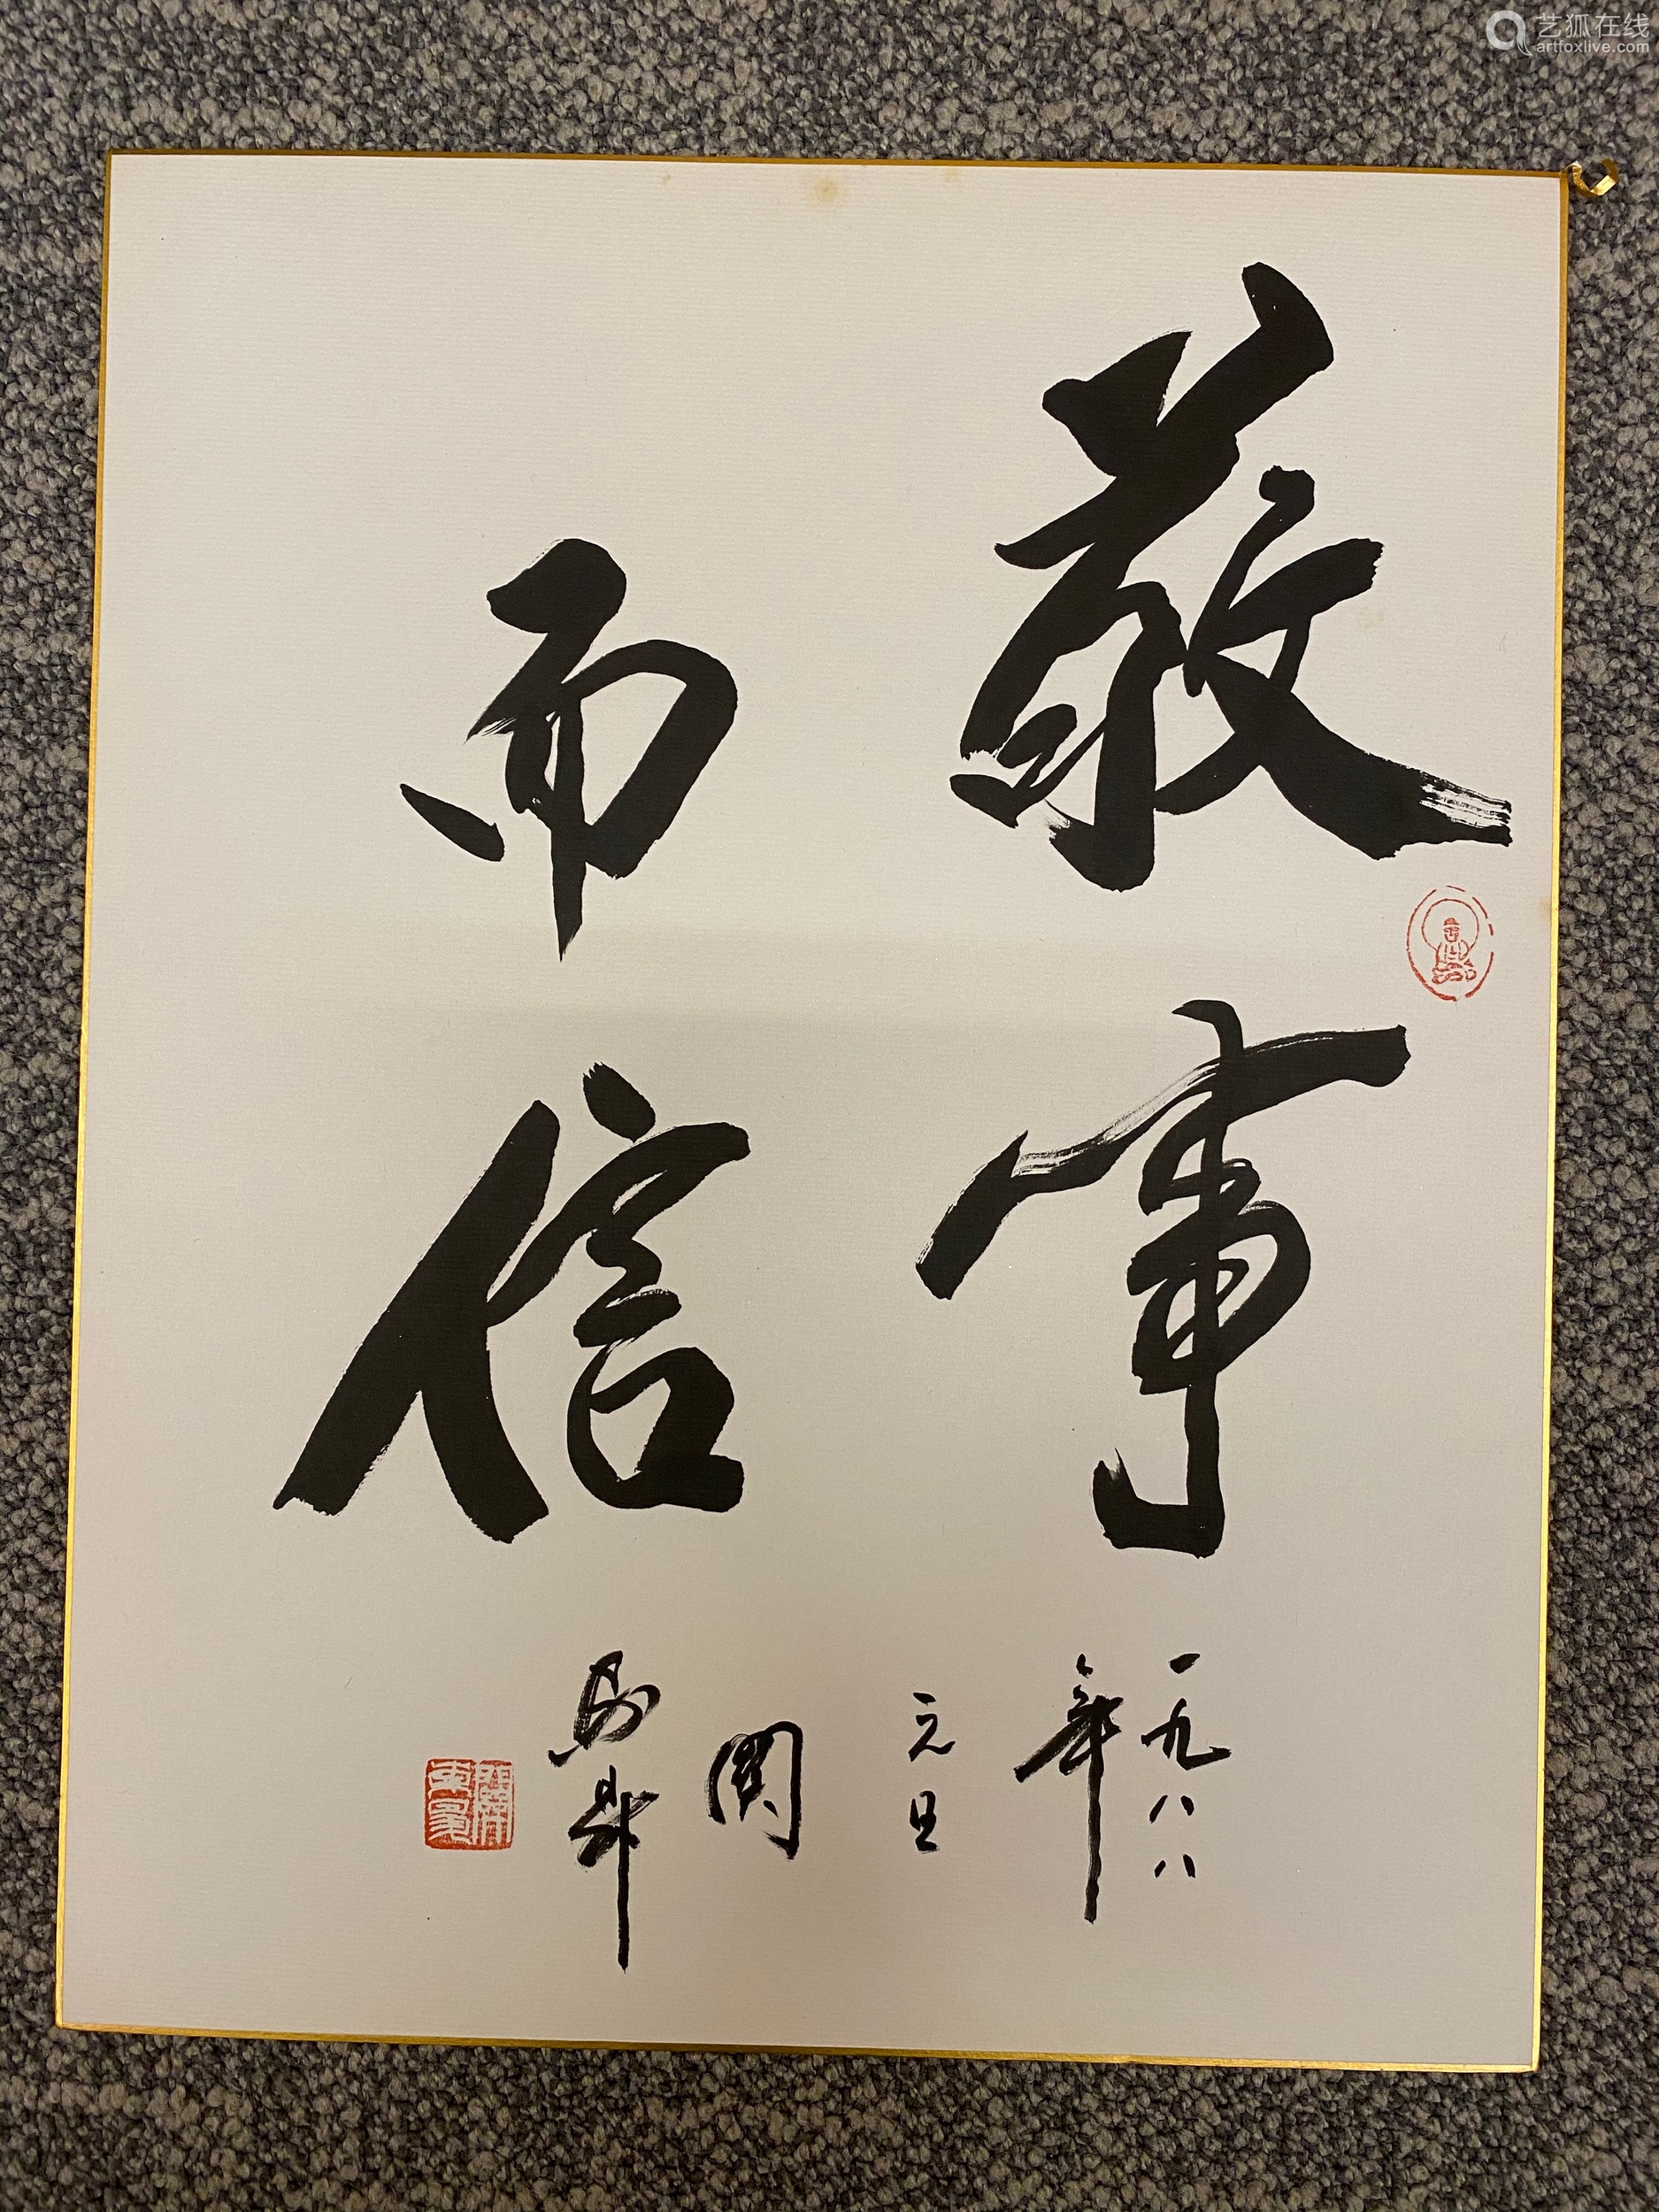 艺狐在线
artfoxlive.com
敬事
而信
一九八八
年
元旦
関